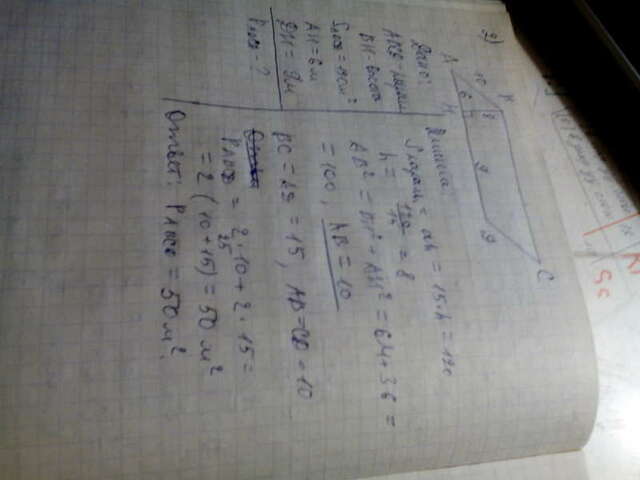 2)
A
B
C
D
H
10
6
8
9
Дано:
ABCD - парал.
BH - высота
S ABCD = 120 см²
AH = 6 м
DH = 9 м
P ABCD - ?
Решение:
S парал. = ah = 15·h = 120
h = 120/15 = 8
AB² = BH² + AH² = 64 + 36 =
= 100, AB = 10
BC = AD = 15, AB = CD = 10
P ABCD = 2·10 + 2·15 =
25
= 2(10+15) = 50 м²
Ответ: P ABCD = 50 м².